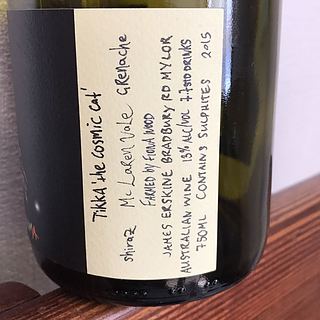 Tikka 'the cosmic cat'
shiraz McLaren Vale Grenache
Farmed by Fiona Wood
James Erskine Bradbury Rd Mylor
Australian Wine 13% Alc/Vol 7.7 STD Drinks
750ml Contains Sulphites 2015